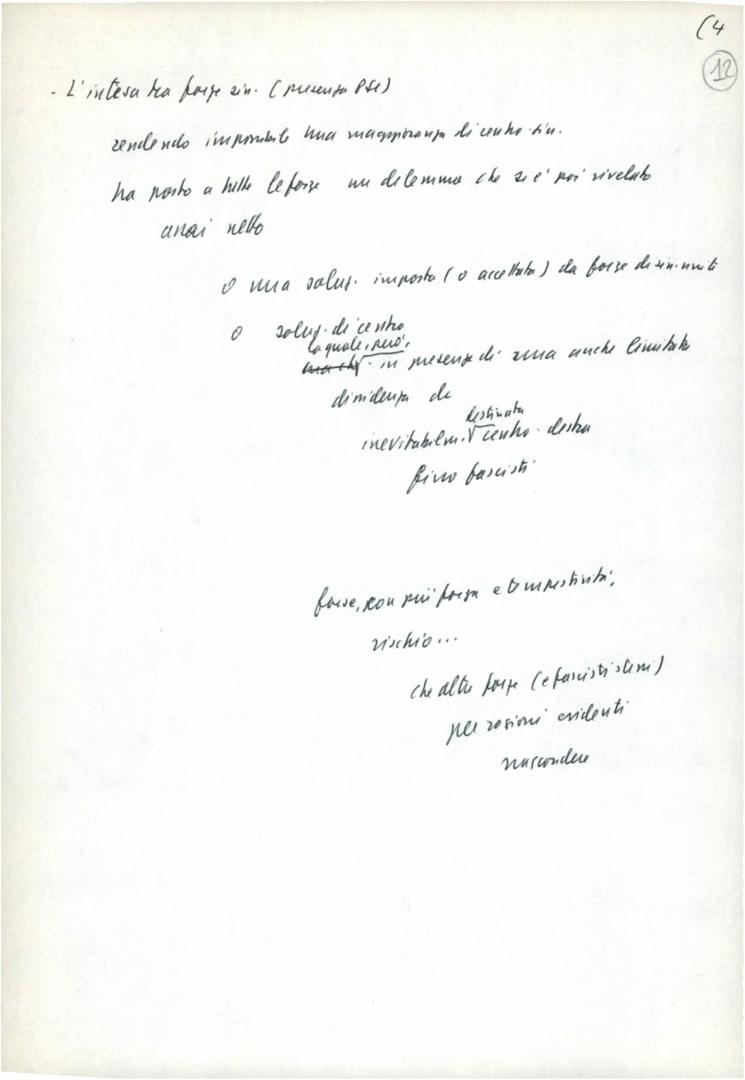 (4
12
- L'intesa tra forze sin. (presenza PSI)
rendendo impossibile una maggioranza di centro-sin.
ha posto a tutte le forze un dilemma che si è poi rivelato
assai netto
o una soluz. imposta (o accettata) da forze di sin. unite
o soluz. di centro
la quale, però,
in presenza di una anche limitata
dissidenza dc
destinata
inevitabilm. centro-destra
fino fascisti
forse, con più forza e tempestività,
rischio...
che altre forze (e fascisti stessi)
per ragioni evidenti
nascondere